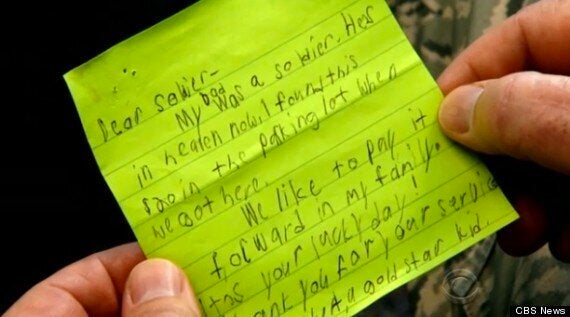 Dear
My dad was a soldier. Hes
in heaven now. I found this
in the parking lot when
we got here.
We like to pay it
forward in my family.
your lucky day!
ank you for your service
A gold star kid.
CBS News